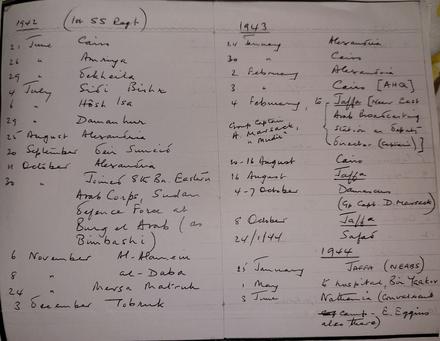 1942 (1st SS Regt)
21 June Cairo
26 " Amriya
29 " Dekheila
4 July Sidi Bishr
6 " Hosh Isa
29 " Damanhur
25 August Alexandria
20 September
11 October Alexandria
30 " Joined 8th Bn Eastern
Arab Corps, Sudan
Defence Force at
Burg el Arab (as
Bimbashi)
6 November Al-Alamein
8 " al-Daba
24 " Mersa Matruh
3 December Tobruk
1943
24 January Alexandria
30 " Cairo
2 February Alexandria
3 " Cairo [AHQ]
4 February, to Jaffa [Near East
Arab Broadcasting
Station as Deputy
Director (Captain)]
Group Captain
A. Marsack,
"Mudir"
10-16 August Cairo
16 August Jaffa
4-7 October Damascus
(Gp Capt D. Marsack)
8 October Jaffa
24/1/44 Safad
1944
25 January JAFFA (NEABS)
1 May to hospital, Bir Yaakov
3 June Nathania (Convalescent
camp - E. Eggins
also there)